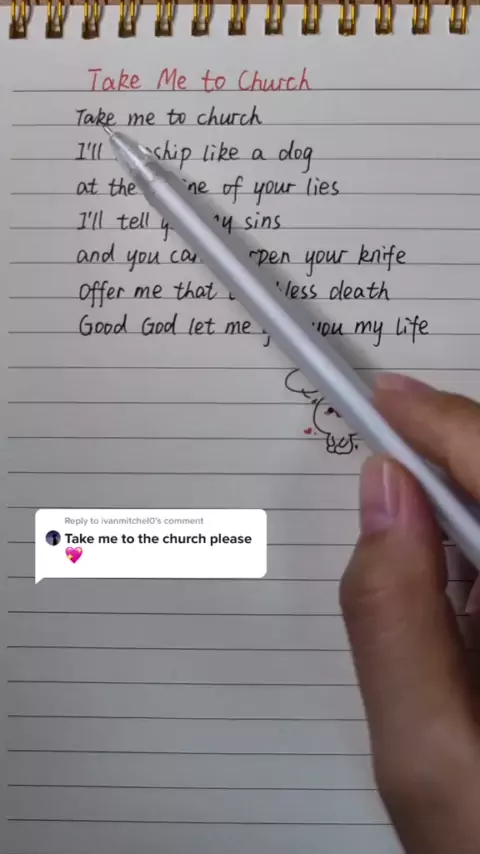 Take Me to Church
Take me to church
I'll ship like a dog
at the ne of your lies
I'll tell my sins
and you can pen your knife
Offer me that less death
Good God let me you my life
Reply to ivanmitchel0's comment
Take me to the church please
💖